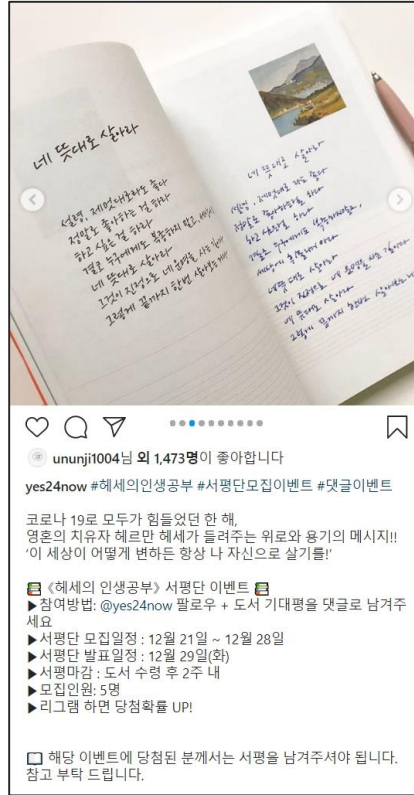 네 뜻대로 살아라
설령, 제멋대로라도 좋다
정말로 좋아하는 걸 하라
하고 싶은 걸 하라
결코 누구에게도 복종하지 말고
네 뜻대로 살아라
그것이 진정으로 네 운명을 사는
그렇게 끝까지 한번 살아보는
네 뜻대로 살아라
설령, 제멋대로라도 좋다
정말로 좋아하는 걸 하라
하고 싶은 걸 하라
네 뜻대로 살아라
그것이 진정으로 네 운명을 사는
네 뜻대로 살아라
그렇게 끝까지 한번
ununji1004님 외 1,473명이 좋아합니다
yes24now #헤세의인생공부 #서평단모집이벤트 #댓글이벤트
코로나 19로 모두가 힘들었던 한 해,
영혼의 치유자 헤르만 헤세가 들려주는 위로와 용기의 메시지!!
'이 세상이 어떻게 변하든 항상 나 자신으로 살기를!'
《헤세의 인생공부》 서평단 이벤트
▶참여방법: @yes24now 팔로우 + 도서 기대평을 댓글로 남겨주
세요
▶서평단 모집일정 : 12월 21일 ~ 12월 28일
▶서평단 발표일정 : 12월 29일(화)
▶서평마감 : 도서 수령 후 2주 내
▶모집인원: 5명
▶리그램 하면 당첨확률 UP!
해당 이벤트에 당첨된 분께서는 서평을 남겨주셔야 됩니다.
참고 부탁 드립니다.